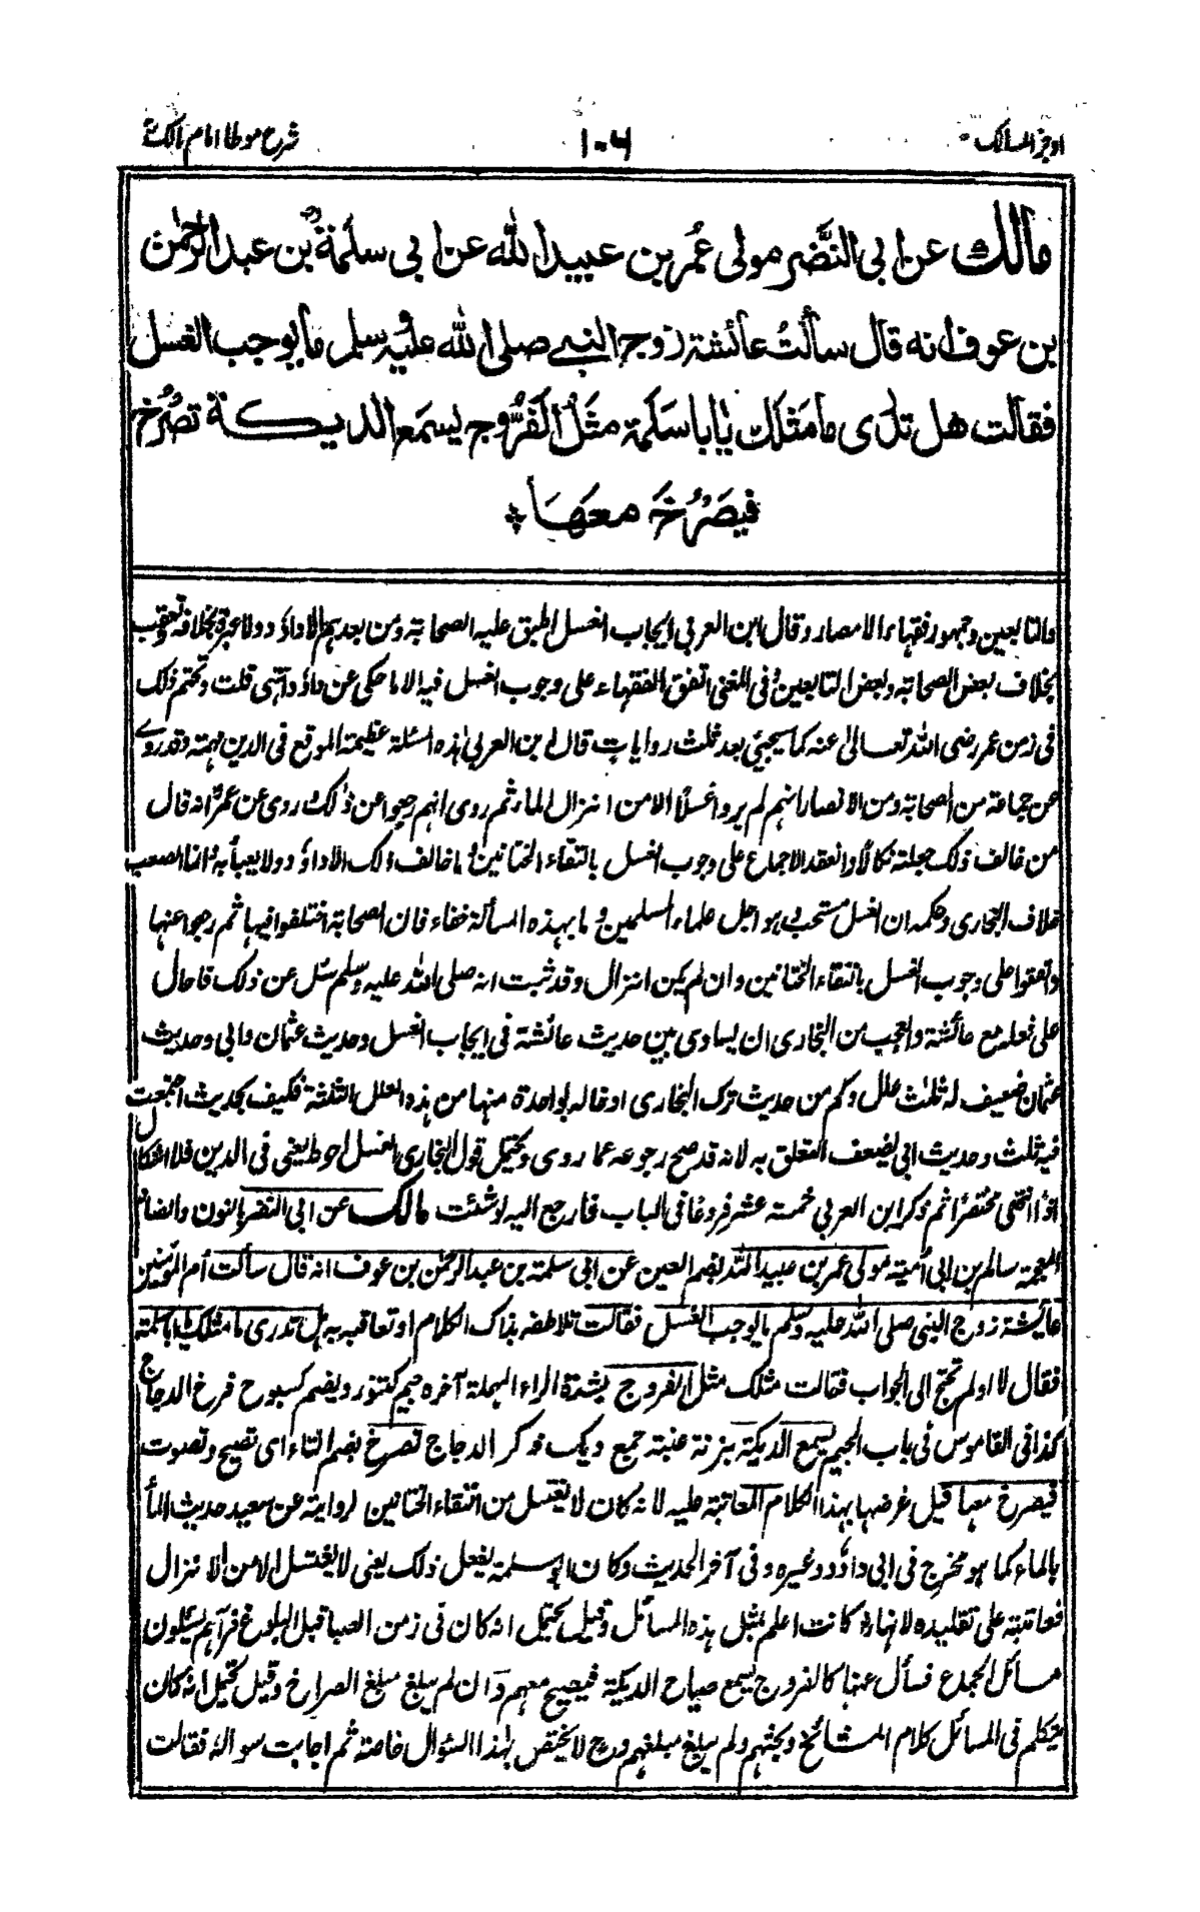 اوجز المسالك
١٠٦
شرح موطا امام مالك
مالك عن ابي النَّضر مولى عُمر بن عبيد الله عن ابي سلمة بن عبد الرحمٰن
بن عوف انه قال سألتُ عائشة زوج النبي صلى الله عليه وسلم ما يوجب الغسل
فقالت هل تدري ما مَثَلك يا ابا سَلَمة مثَلُ الفَرُّوج يسمَع الديكة تصرُخ
فيَصْرُخَ معهَا
والتابعين وجمهور فقهاء الامصار وقال ابن العربي ايجاب الغسل اطبق عليه الصحابة ومن بعدهم الا داؤد ولا عبرة بخلافه وتعقب
بخلاف بعض الصحابة وبعض التابعين وفى المغنى اتفق الفقهاء على وجوب الغسل فيه الا ما حكى عن داؤد انتهى قلت وتحتم ذلك
فى زمن عمر رضى الله تعالىٰ عنه كما سيجيئ بعد ثلث روايات قال ابن العربي هذه المسئلة عظيمة الموقع فى الدين مهمة وقد روى
عن جماعة من الصحابة ومن الانصار انهم لم يروا غسلًا الا من انزال الماء ثم روى انهم رجعوا عن ذٰلك روى عن عمرؓ انه قال
من خالف ذلك جعلته نكالًا وانعقد الاجماع على وجوب الغسل بالتقاء الختانين وما خالف ذلك الا داؤد ولا يعبأ به وانما الصعب
خلاف البخارى وحكمه ان الغسل مستحب وهو اجل علماء المسلمين وما بهذه المسألة خفاء فان الصحابة اختلفوا فيها ثم رجعوا عنها
واتفقوا على وجوب الغسل بالتقاء الختانين وان لم يكن انزال وقد ثبت انه صلى الله عليه وسلم سئل عن ذلك فاحال
على فعله مع عائشة والعجب من البخارى ان يساوى بين حديث عائشة فى ايجاب الغسل وحديث عثمان وابي وحديث
عثمان ضعيف له ثلٰث علل وكم من حديث ترك البخارى ادخاله لواحدة منها من هذه العلل الثلثة فكيف بحديث اجتمعت
فيه ثلث وحديث ابي يضعف التعلق به لانه قد صح رجوعه عما روى ويحتمل قول البخارى الغسل احوط يعنى فى الدين فلا اشكال
اذًا انتهى مختصرًا ثم ذكر ابن العربي خمسة عشر فروعًا فى الباب فارجع اليه لو شئت مالك عن ابى النضر بالنون والضاد
المعجمة سالم بن ابى أمية مولى عمر بن عبيد الله بضم العين عن ابى سلمة بن عبد الرحمٰن بن عوف انه قال سألت أم المؤمنين
عائشة زوج النبى صلى الله عليه وسلم ما يوجب الغسل فقالت تلاطفه بذاك الكلام او تعاقبه به هل تدرى ما مثلك يا ابا سلمة
فقال لا او لم تحتج الى الجواب فقالت مثلك مثل الفروج بشدة الراء المهملة آخره جيم كتنور ويضم كسبوح فرخ الدجاج
كذا فى القاموس فى باب الجيم يسمع الديكة بزنة عنبة جمع ديك ذكر الدجاج تصرخ بضم التاء اى تصيح وتصوت
فيصرخ معها قيل غرضها بهذا الكلام المعاتبة عليه لانه كان لا يغتسل من التقاء الختانين لرواية عن ابى سعيد حديث الماء
بالماء كما هو مخرج فى ابى داؤد وغيره وفى آخر الحديث وكان ابو سلمة يفعل ذلك يعنى لا يغتسل الا من الانزال
فعاتبته على تقليده لانهاؓ كانت اعلم بمثل هذه المسائل وقيل يحتمل انه كان فى زمن الصبا قبل البلوغ فرآهم يسئلون
مسائل الجماع فسأل عنها كالفروج يسمع صياح الديكة فيصيح معهم وان لم يبلغ مبلغ الصراخ وقيل يحتمل انه كان
يتكلم فى المسائل كلام المشائخ ويحبهم ولم يبلغ مبلغهم وح لا يختص بهذا السؤال خاصة ثم اجابت سواله فقالت